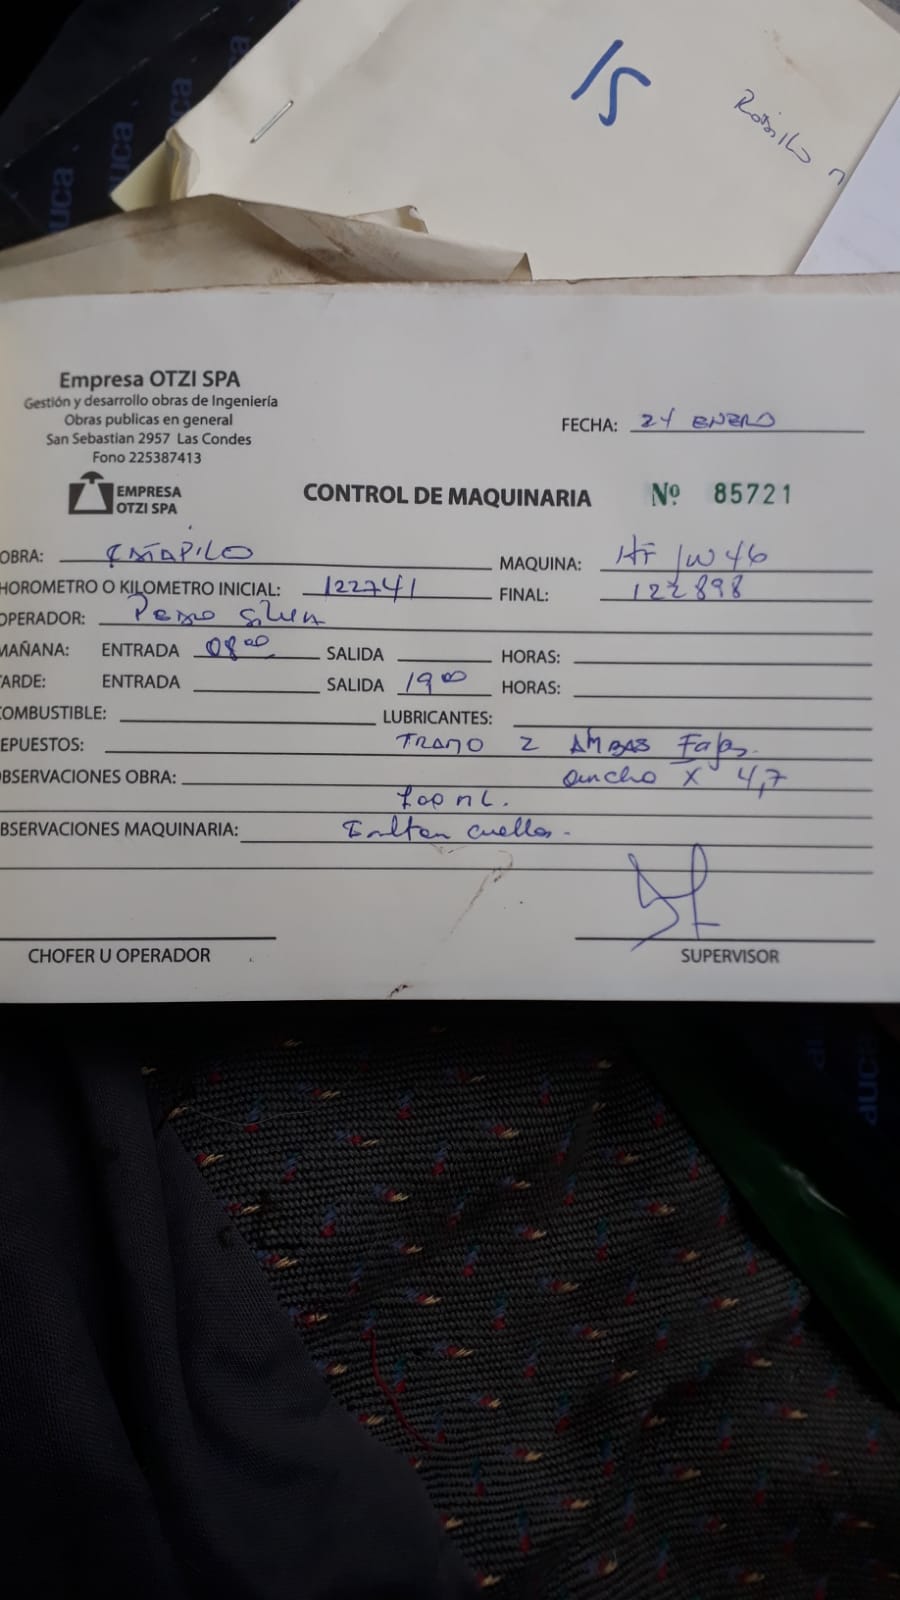 15
Empresa OTZI SPA
Gestión y desarrollo obras de Ingeniería
Obras publicas en general
San Sebastian 2957 Las Condes
Fono 225387413
EMPRESA
OTZI SPA
FECHA: 24 ENERO
CONTROL DE MAQUINARIA Nº 85721
OBRA: CATAPILO MAQUINA: HF JW 46
HOROMETRO O KILOMETRO INICIAL: 122741 FINAL: 122898
OPERADOR: Pedro Silva
MAÑANA: ENTRADA 08 00 SALIDA HORAS:
ARDE: ENTRADA SALIDA 19 00 HORAS:
OMBUSTIBLE: LUBRICANTES:
EPUESTOS: TRAMO 2 AMBAS Fajas.
BSERVACIONES OBRA: ancho X 4,7
700 mL.
BSERVACIONES MAQUINARIA: Faltan cuellos.
CHOFER U OPERADOR SUPERVISOR
auca